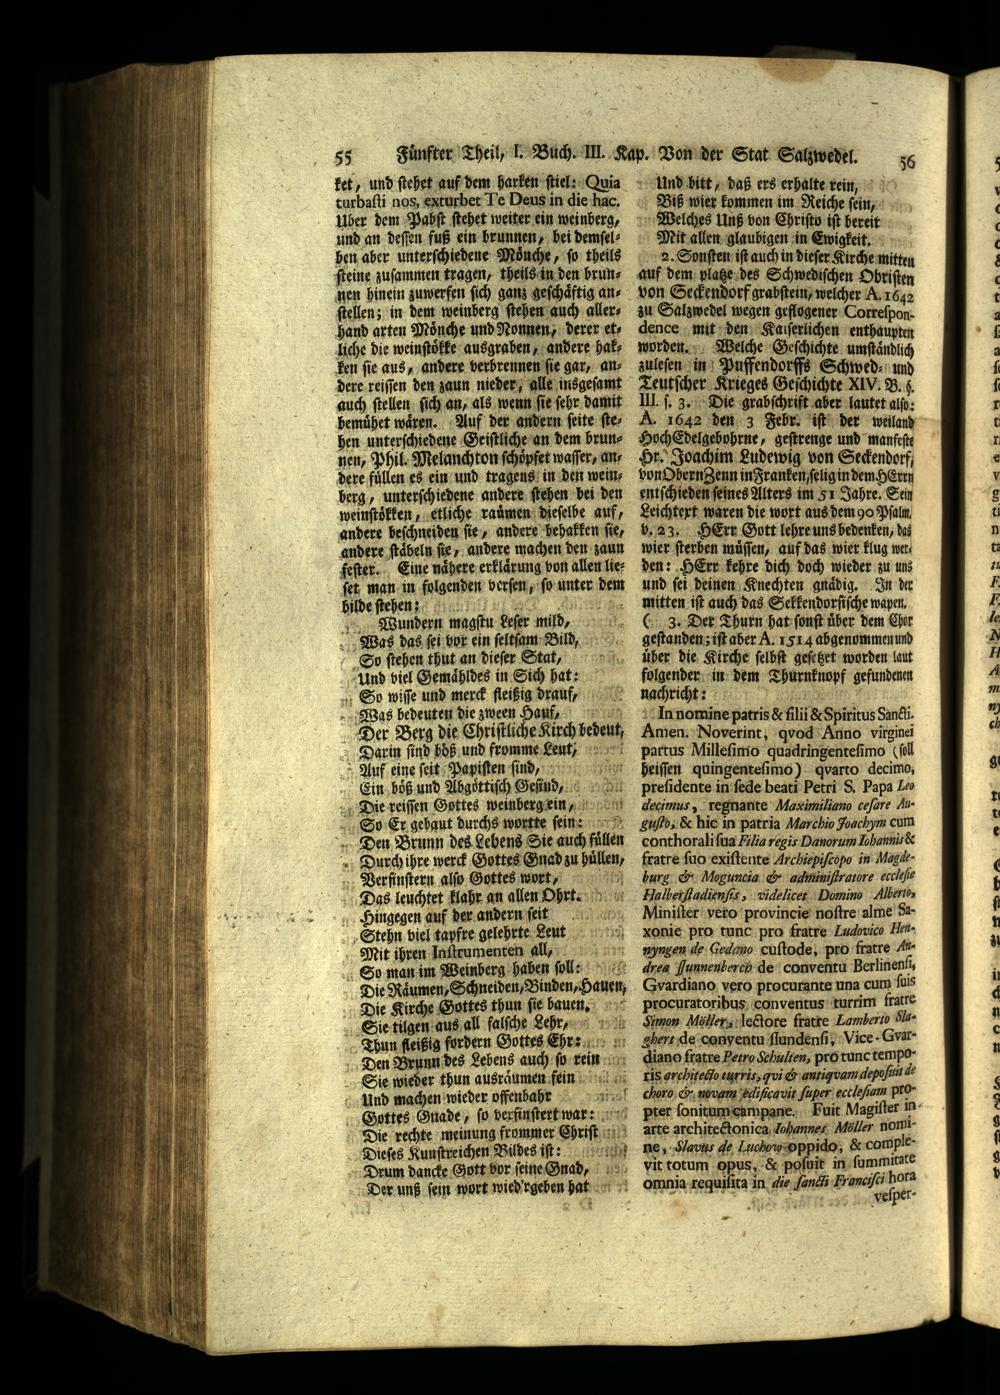 55 Fünfter Theil, I. Buch. III. Kap. Von der Stat Salzwedel. 56
ket, und stehet auf dem harken stiel: Quia
turbasti nos, exturbet Te Deus in die hac.
Uber dem Pabst stehet weiter ein weinberg,
und an dessen fuß ein brunnen, bei demsel-
ben aber unterschiedene Mönche, so theils
steine zusammen tragen, theils in den brun-
nen hinein zuwerfen sich ganz geschäftig an-
stellen; in dem weinberg stehen auch aller-
hand arten Mönche und Nonnen, derer et-
liche die weinstökke ausgraben, andere hak-
ken sie aus, andere verbrennen sie gar, an-
dere reissen den zaun nieder, alle insgesamt
auch stellen sich an, als wenn sie sehr damit
bemühet wären. Auf der andern seite ste-
hen unterschiedene Geistliche an dem brun-
nen, Phil. Melanchton schöpfet wasser, an-
dere füllen es ein und tragens in den wein-
berg, unterschiedene andere stehen bei den
weinstökken, etliche räumen dieselbe auf,
andere beschneiden sie, andere behakken sie,
andere stäbeln sie, andere machen den zaun
fester. Eine nähere erklärung von allen lie-
set man in folgenden versen, so unter dem
bilde stehen:
Wundern magstu Leser mild,
Was das sei vor ein seltsam Bild,
So stehen thut an dieser Stat,
Und viel Gemähldes in Sich hat:
So wisse und merck fleißig drauf,
Was bedeuten die zween Hauf,
Der Berg die Christliche Kirch bedeut,
Darin sind böß und fromme Leut,
Auf eine seit Papisten sind,
Ein böß und Abgöttisch Gesind,
Die reissen Gottes weinberg ein,
So Er gebaut durchs wortte sein:
Den Brunn des Lebens Sie auch füllen
Durch ihre werck Gottes Gnad zu hüllen,
Verfinstern also Gottes wort,
Das leuchtet klahr an allen Ohrt.
Hingegen auf der andern seit
Stehn viel tapfre gelehrte Leut
Mit ihren Instrumenten all,
So man im Weinberg haben soll:
Die Räumen, Schneiden, Binden, Hauen,
Die Kirche Gottes thun sie bauen.
Sie tilgen aus all falsche Lehr,
Thun fleißig fordern Gottes Ehr:
Den Brunn des Lebens auch so rein
Sie wieder thun ausräumen fein
Und machen wieder offenbahr
Gottes Gnade, so verfinstert war:
Die rechte meinung frommer Christ
Dieses Kunstreichen Bildes ist:
Drum dancke Gott vor seine Gnad,
Der unß sein wort wied'rgeben hat
Und bitt, daß ers erhalte rein,
Biß wier kommen im Reiche sein,
Welches Unß von Christo ist bereit
Mit allen glaubigen in Ewigkeit.
2. Sonsten ist auch in dieser Kirche mitten
auf dem platze des Schwedischen Obristen
von Seckendorf grabstein, welcher A. 1642
zu Salzwedel wegen geflogener Correspon-
dence mit den Kaiserlichen enthaupten
worden. Welche Geschichte umständlich
zulesen in Puffendorffs Schwed- und
Teutscher Krieges Geschichte XIV. B. §.
III. s. 3. Die grabschrift aber lautet also:
A. 1642 den 3 Febr. ist der weiland
HochEdelgebohrne, gestrenge und manfeste
Hr. Joachim Ludewig von Seckendorf,
von Obern Zenn in Franken, selig in dem HErrn
entschieden seines Alters im 51 Jahre. Sein
Leichtext waren die wort aus dem 90 Psalm.
v. 23. HErr Gott lehre uns bedenken, das
wier sterben müssen, auf das wier klug wer-
den: HErr kehre dich doch wieder zu uns
und sei deinen Knechten gnädig. In der
mitten ist auch das Sekkendorfische wapen.
( 3. Der Thurn hat sonst über dem Chor
gestanden; ist aber A. 1514 abgenommen und
über die Kirche selbst gesetzet worden laut
folgender in dem Thurnknopf gefundenen
nachricht:
In nomine patris & filii & Spiritus Sancti.
Amen. Noverint, qvod Anno virginei
partus Millesimo quadringentesimo (soll
heissen quingentesimo) qvarto decimo,
presidente in sede beati Petri S. Papa Leo
decimus, regnante Maximiliano cesare Au-
gusto, & hic in patria Marchio Joachym cum
conthorali sua Filia regis Danorum Iohannis &
fratre suo existente Archiepiscopo in Magde-
burg & Moguncia & administratore ecclesie
Halberstadiensis, videlicet Domino Alberto,
Minister vero provincie nostre alme Sa-
xonie pro tunc pro fratre Ludovico Hen-
nyngen de Gedano custode, pro fratre An-
drea ssunnenberch de conventu Berlinensi,
Gvardiano vero procurante una cum suis
procuratoribus conventus turrim fratre
Simon Möller, lectore fratre Lamberto Sla-
ghert de conventu ssundensi, Vice-Gvar-
diano fratre Petro Schulten, pro tunc tempo-
ris architecto turris, qvi & antiqvam deposuit de
choro & novam edificavit super ecclesiam pro-
pter sonitum campane. Fuit Magister in
arte architectonica Iohannes Möller nomi-
ne, Slavus de Luchow oppido, & comple-
vit totum opus, & posuit in summitate
omnia requisita in die sancti Francisci hora
vesper-